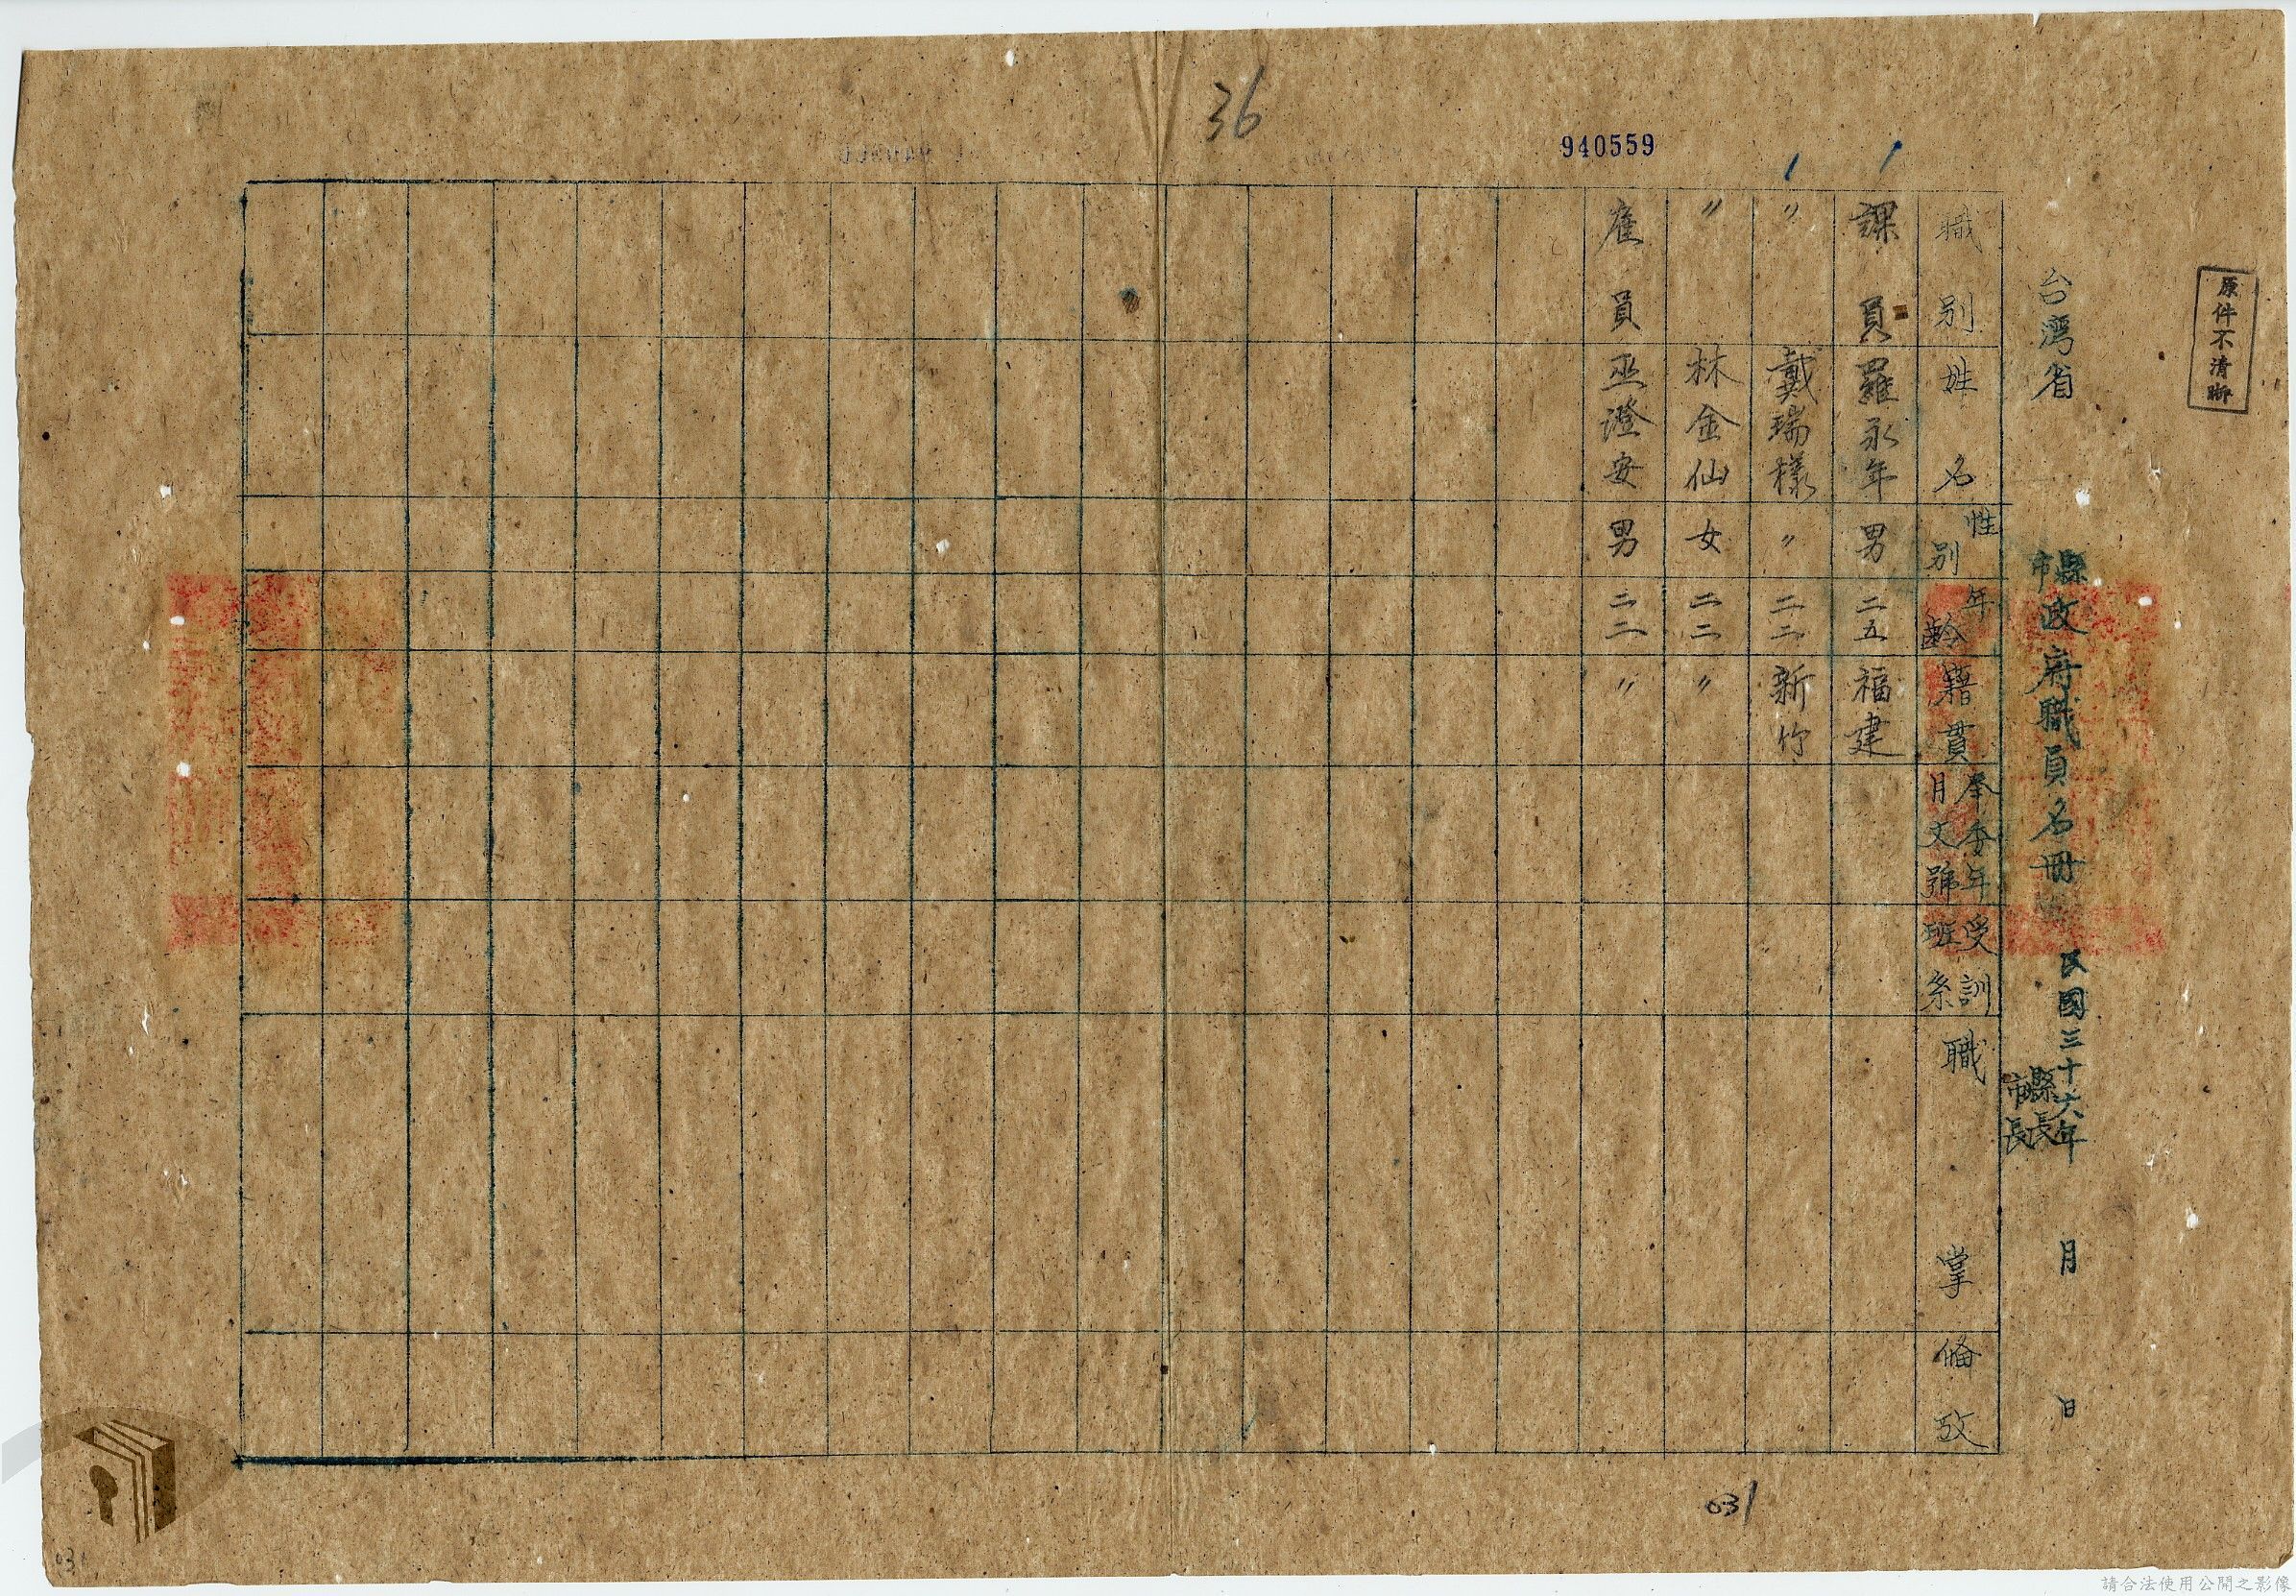 36
940559
原件不清晰
台湾省
縣市政府職員名冊
民國三十六年 月 日
縣長
市長
職別 姓名 性別 年齡 籍貫 奉委年月文號 受訓班系 職掌 備攷
課員 羅永年 男 二五 福建
〃 戴瑞樣 〃 二二 新竹
〃 林金仙 女 二二 〃
雇員 巫澄安 男 二二 〃
031
031
請合法使用公開之影像